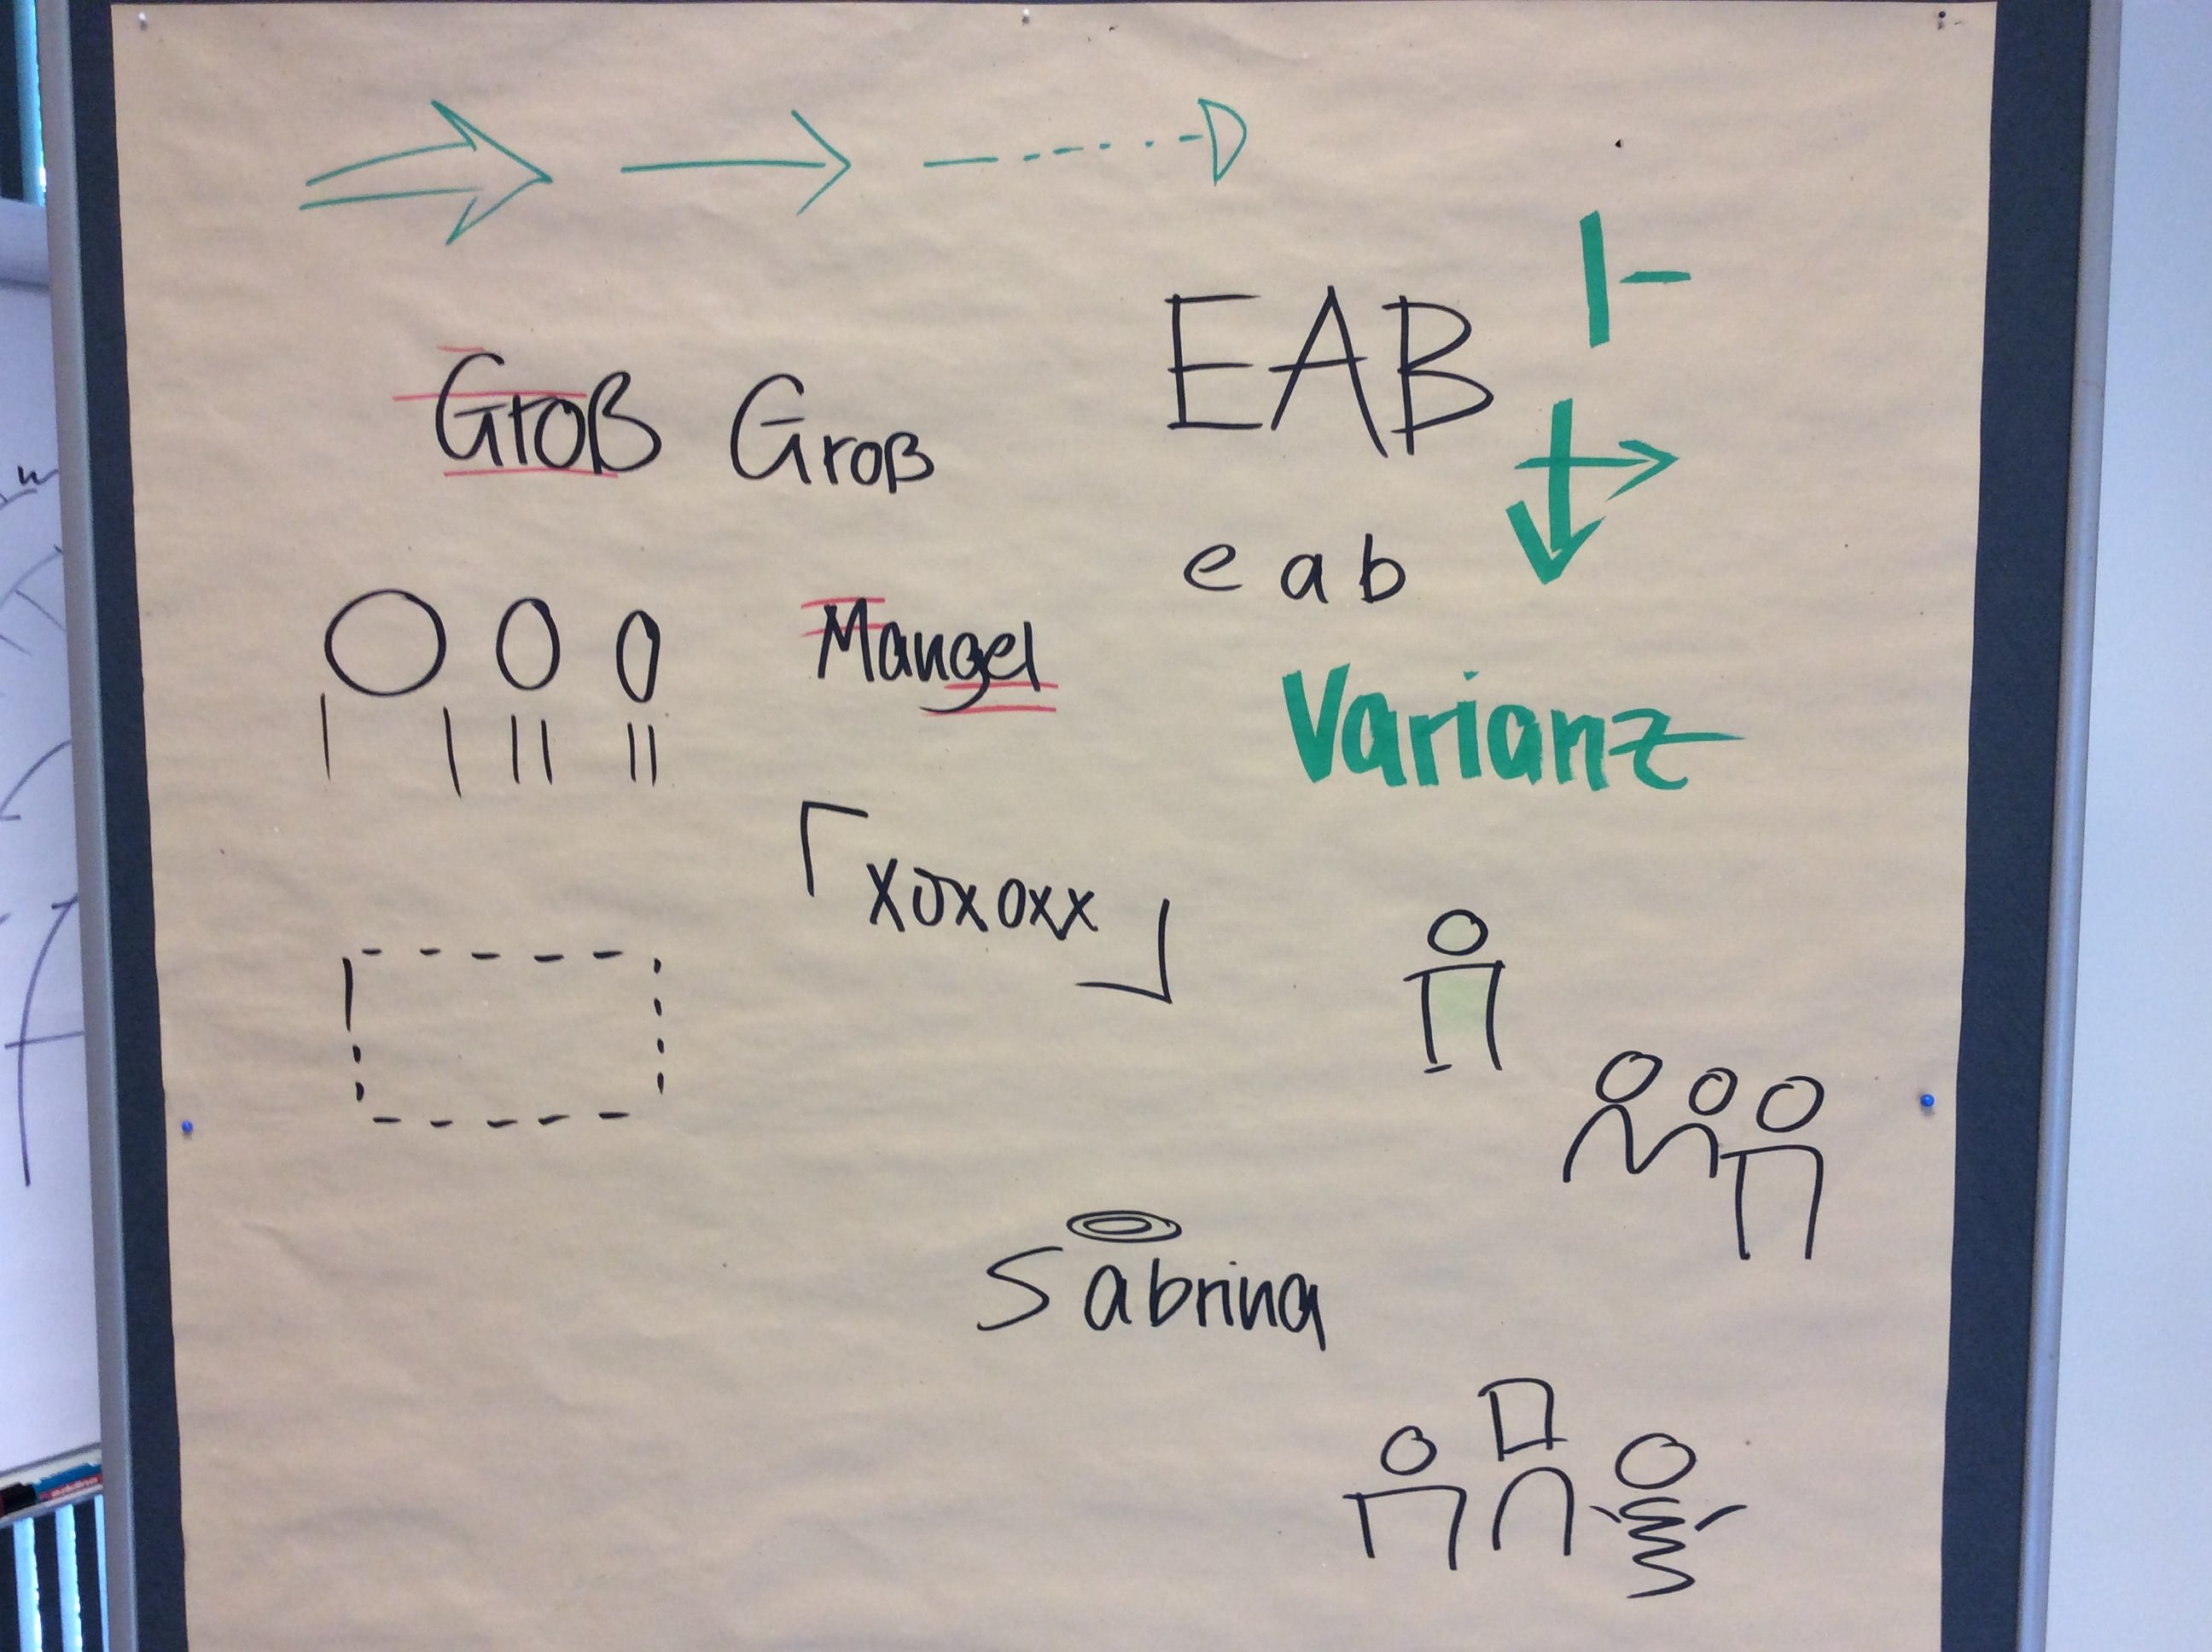 EAB
Groß Groß
e a b
Mangel
Varianz
xoxoxx
Sabrina